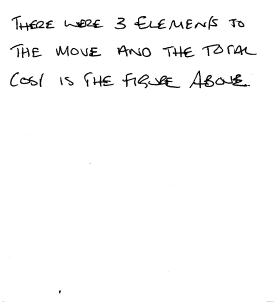 THERE WERE 3 ELEMENTS TO
THE MOVE AND THE TOTAL
COST IS THE FIGURE ABOVE.